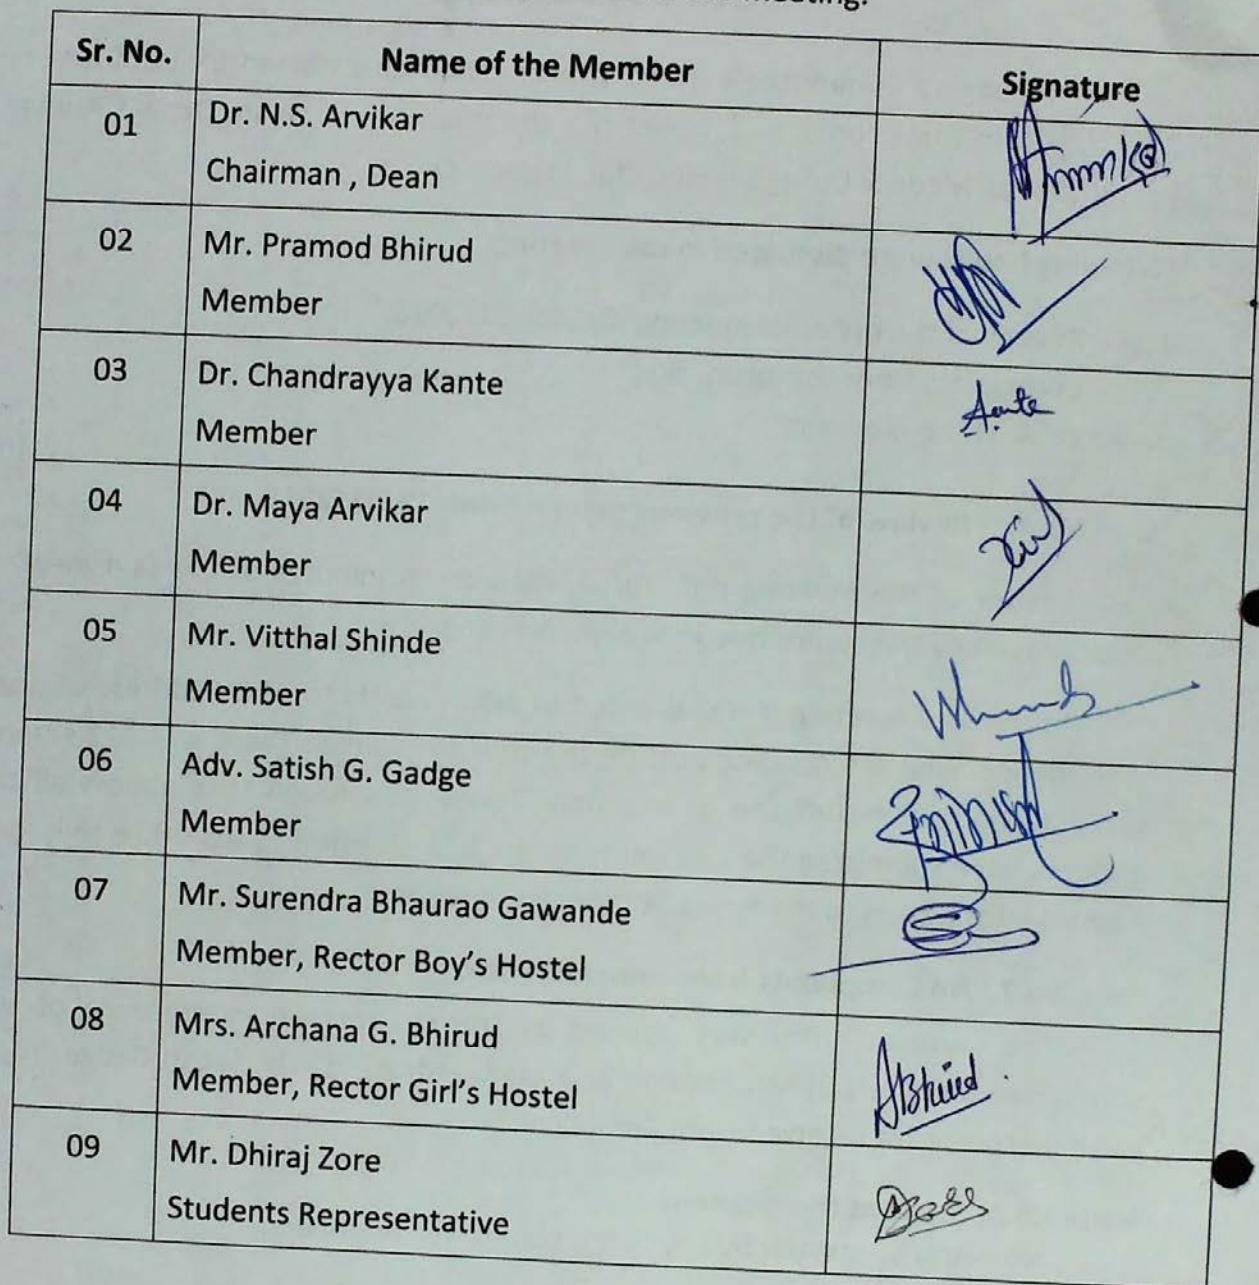 meeting.
Sr. No. Name of the Member Signature
01 Dr. N.S. Arvikar
Chairman , Dean
02 Mr. Pramod Bhirud
Member
03 Dr. Chandrayya Kante
Member
04 Dr. Maya Arvikar
Member
05 Mr. Vitthal Shinde
Member
06 Adv. Satish G. Gadge
Member
07 Mr. Surendra Bhaurao Gawande
Member, Rector Boy's Hostel
08 Mrs. Archana G. Bhirud
Member, Rector Girl's Hostel
ABhirud
09 Mr. Dhiraj Zore
Students Representative